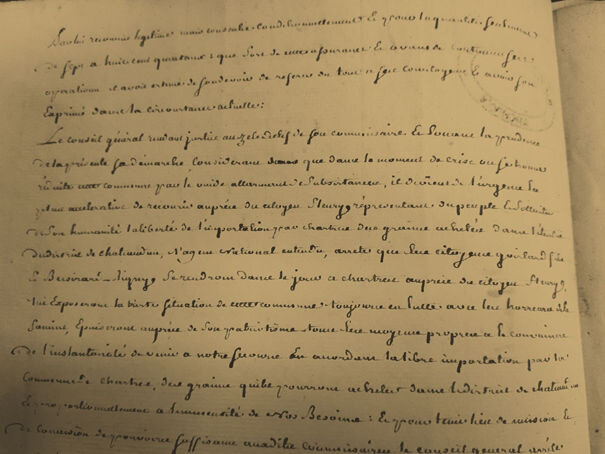 reconnu légitime mais conditionnellement Et pour la quantité seulement
de sept a huit cent quintaux; que fort de cette assurance Et avant de continuer ses
operations il avoit estimé de son devoir de referer du tout a ses Collegues Et avoir son
Exprimé dans la circonstance actuelle:
Le conseil général rendant justice au zele de son commissaire Et Louant la prudence
de la présente sa démarche, Considerant que dans le moment de crise ou se trouve
réduite cette commune par le vuide allarmant de Subsistances, il devient de l'urgence la
plus accelerative de recourir auprès du citoyen fleury représentant du peuple Et Solliciter
de Son humanité la liberté de l'importation par chartres des grains achetés dans l'étendue
du district de chateaudun, L'agent national entendu, arrete que les citoyens
Et Bessirard Se rendront dans le jour a chartres auprès du citoyen fleury,
lui Exposeront la triste situation de cette commune toujours en lutte avec les horreurs de la
famine, Epuiseront auprès de Son patriotisme tous les moyens propres a le convaincre
de l'instantaneité de venir a notre secours En accordant la libre importation par la
Commune de chartres, des grains qu'ils pourront acheter dans le district de chateaudun
Et proportionnellement a l'immensité de nos Besoins: Et pour tenir lieu de mission Et
de commission de pouvoirs suffisans auxdits commissaires le conseil general arrête